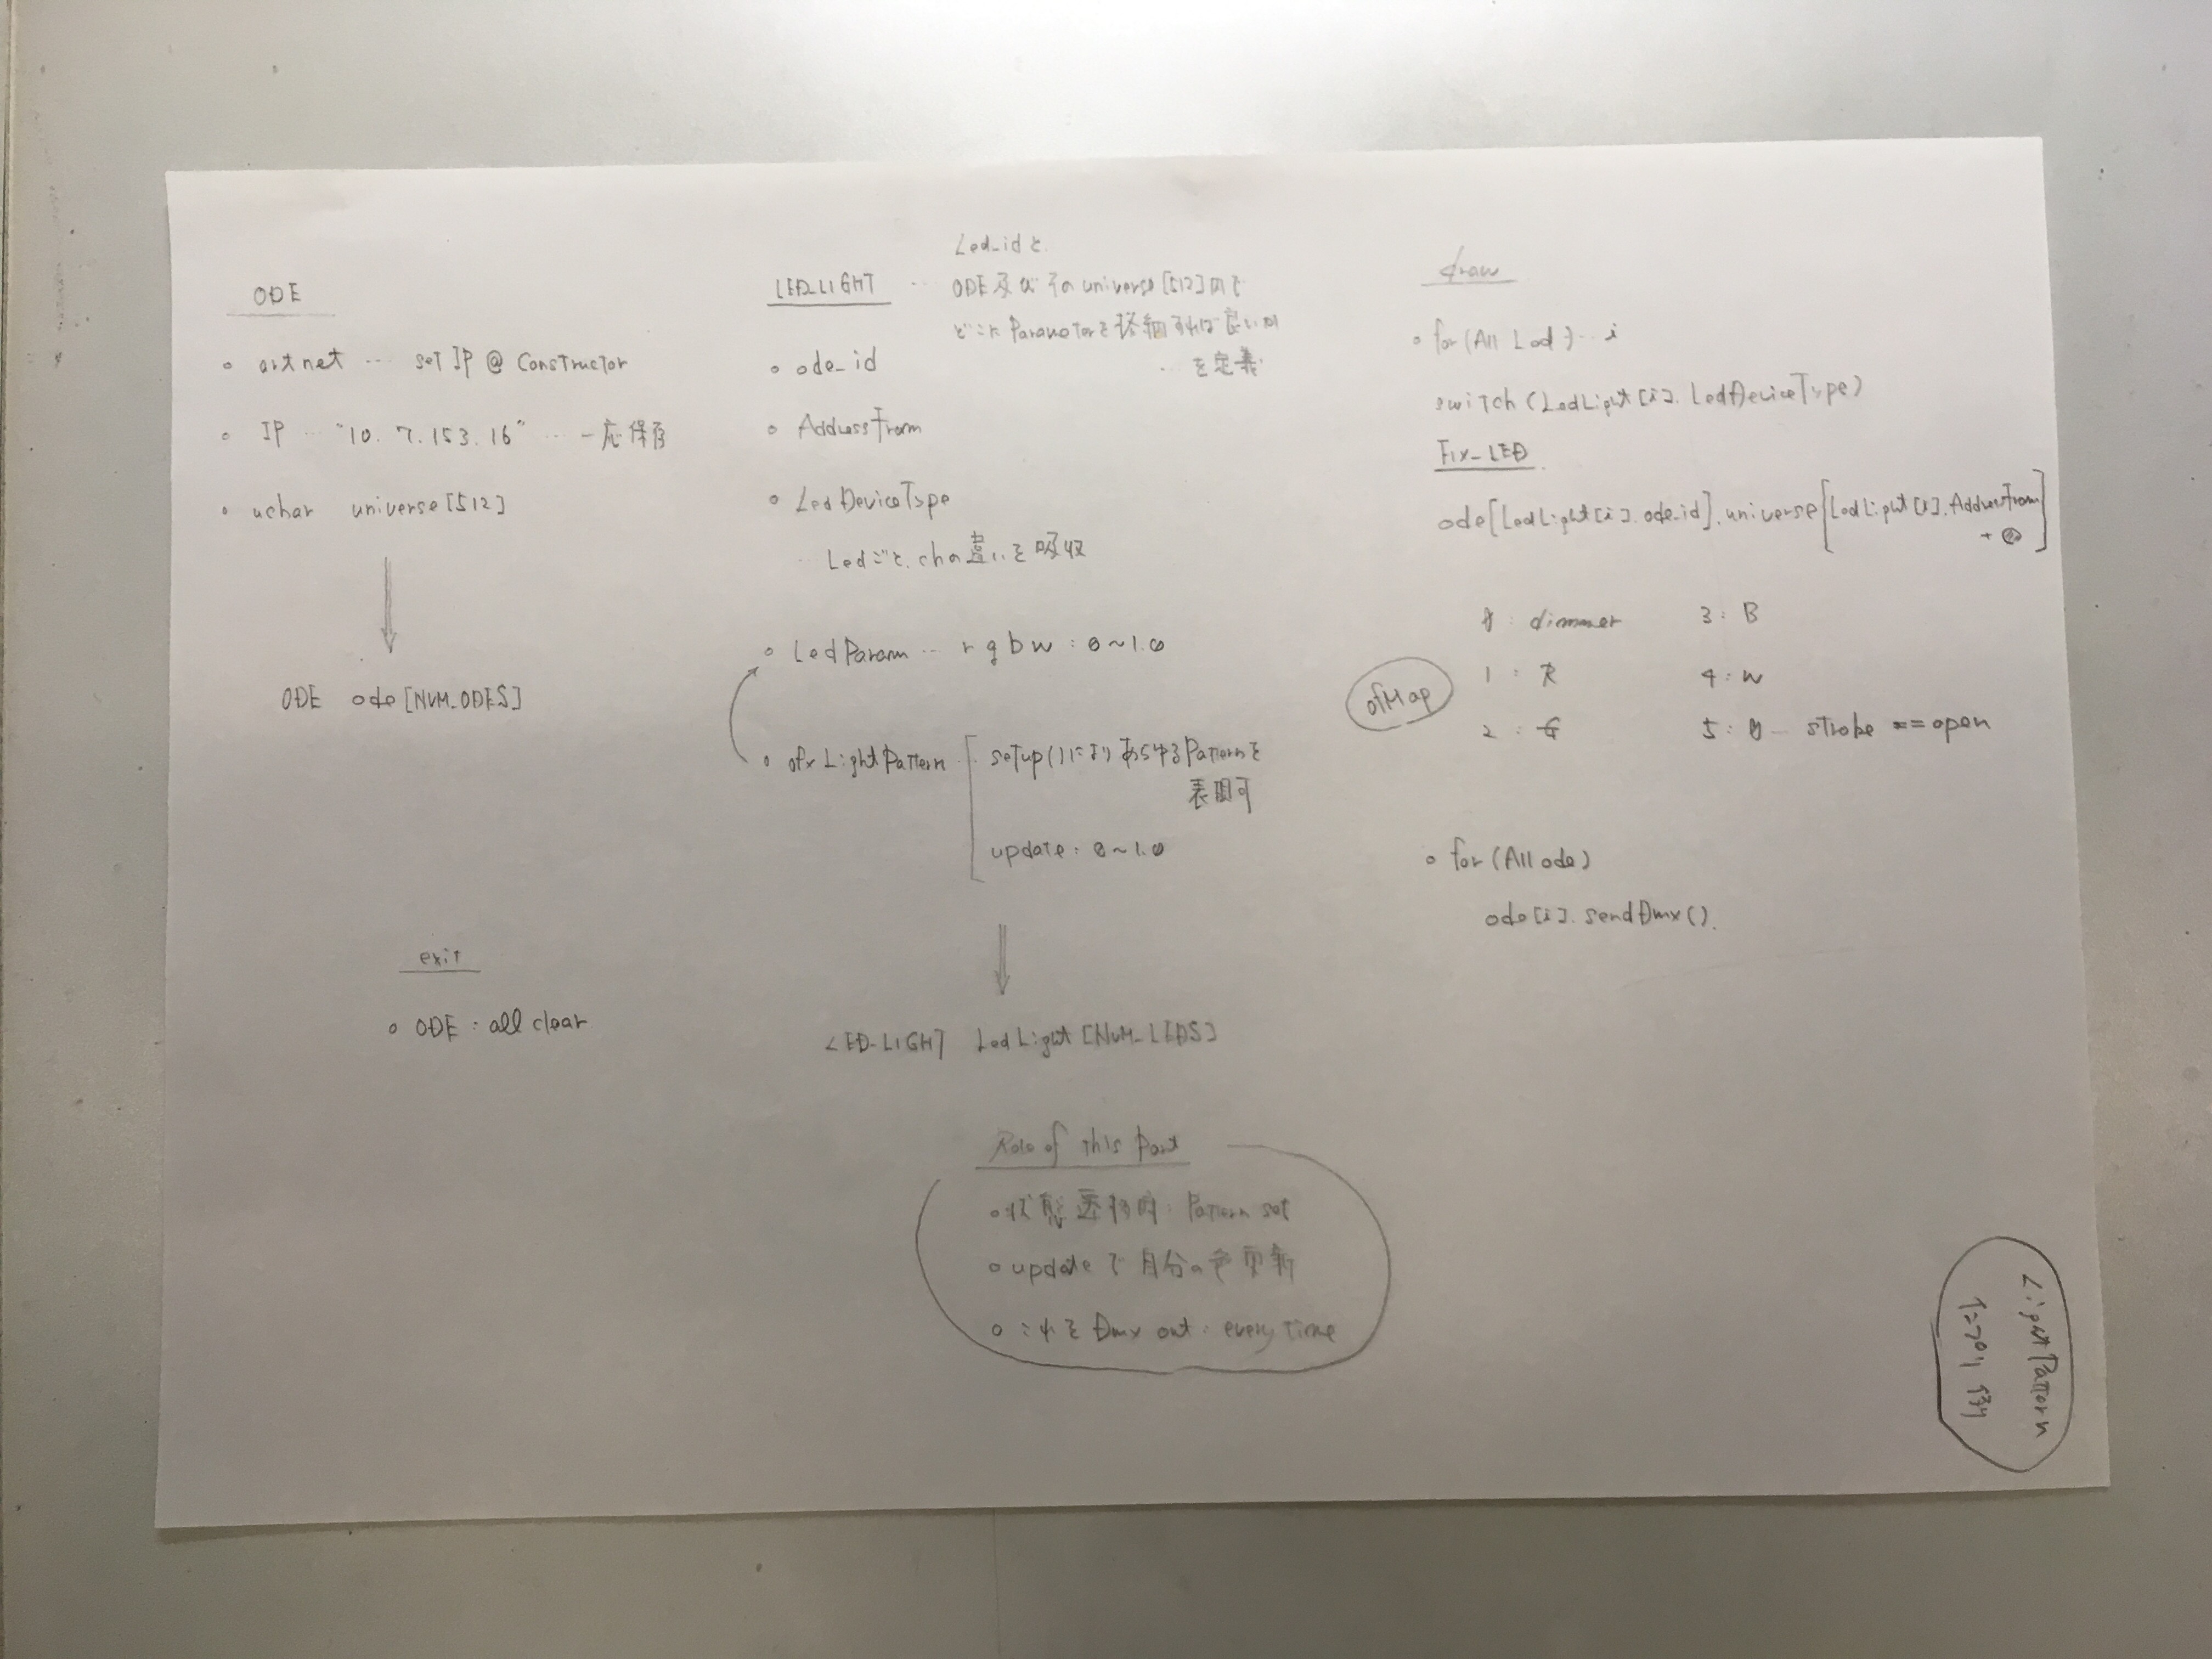 ODE
○ artnet … set IP @ Constructor
○ IP … "10.7.153.16" … 一応保存
○ uchar universe[512]
ODE ode[NUM_ODES]
exit
○ ODE : all clear
LED_LIGHT …
Led_idと
ODE及びその universe[512]内で
どこに Parameterを格納すれば良いか
… を定義
○ ode_id
○ AddressFrom
○ LedDeviceType
… Ledごと、chの違いを吸収
○ LedParam … r g b w : 0~1.0
○ ofxLightPattern …
setup()により あらゆるPatternを
表現可
update : 0~1.0
LED_LIGHT LedLight[NUM_LEDS]
Role of this part
○ 状態遷移時 : Pattern set
○ updateで自分の色更新
○ これを Dmx out : every time
draw
○ for(All Led) … i
switch(LedLight[i].LedDeviceType)
Fix_LED
ode[LedLight[i].ode_id].universe[LedLight[i].AddressFrom
+ ]
ofMap
0 : dimmer 3 : B
1 : R 4 : W
2 : G 5 : 0 … strobe == open
○ for(All ode)
ode[i].sendDmx().
LightPattern